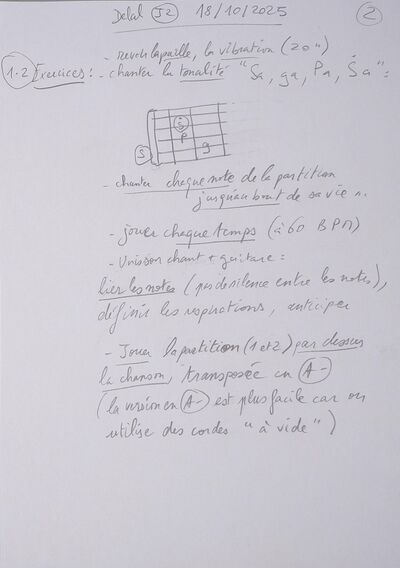 Delal J2 18/10/2025 2
- revoir la paille, la vibration (20")
1-2 Exercices : - chanter la tonalité "Sa, ga, Pa, Ṡa" :
Ṡ
P
g
S
- chanter chaque note de la partition
jusqu'au bout de sa vie".
- jouer chaque temps (à 60 BPM)
- Unisson chant + guitare :
lier les notes (pas de silence entre les notes),
définir les respirations, anticiper
- Jouer la partition (1 et 2) par dessus
la chanson, transposée en A-
(la version en A- est plus facile car on
utilise des cordes "à vide")